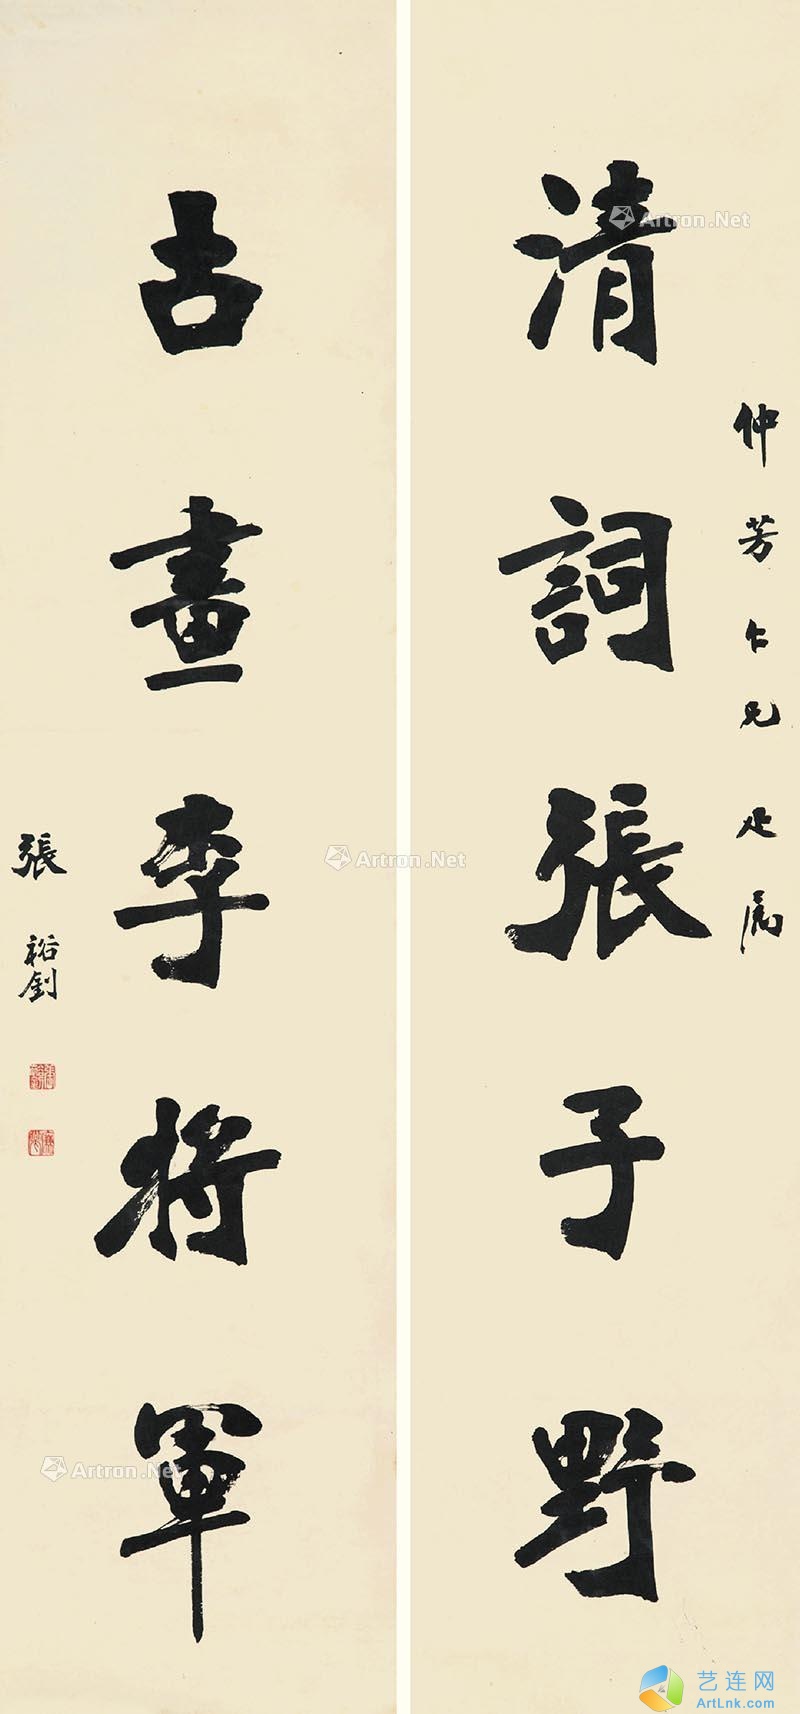 清詞張子野
仲芳仁兄疋属
古畫李將軍
張裕釗
Artron.Net
Artron.Net
Artron.Net
艺连网
ArtLnk.com